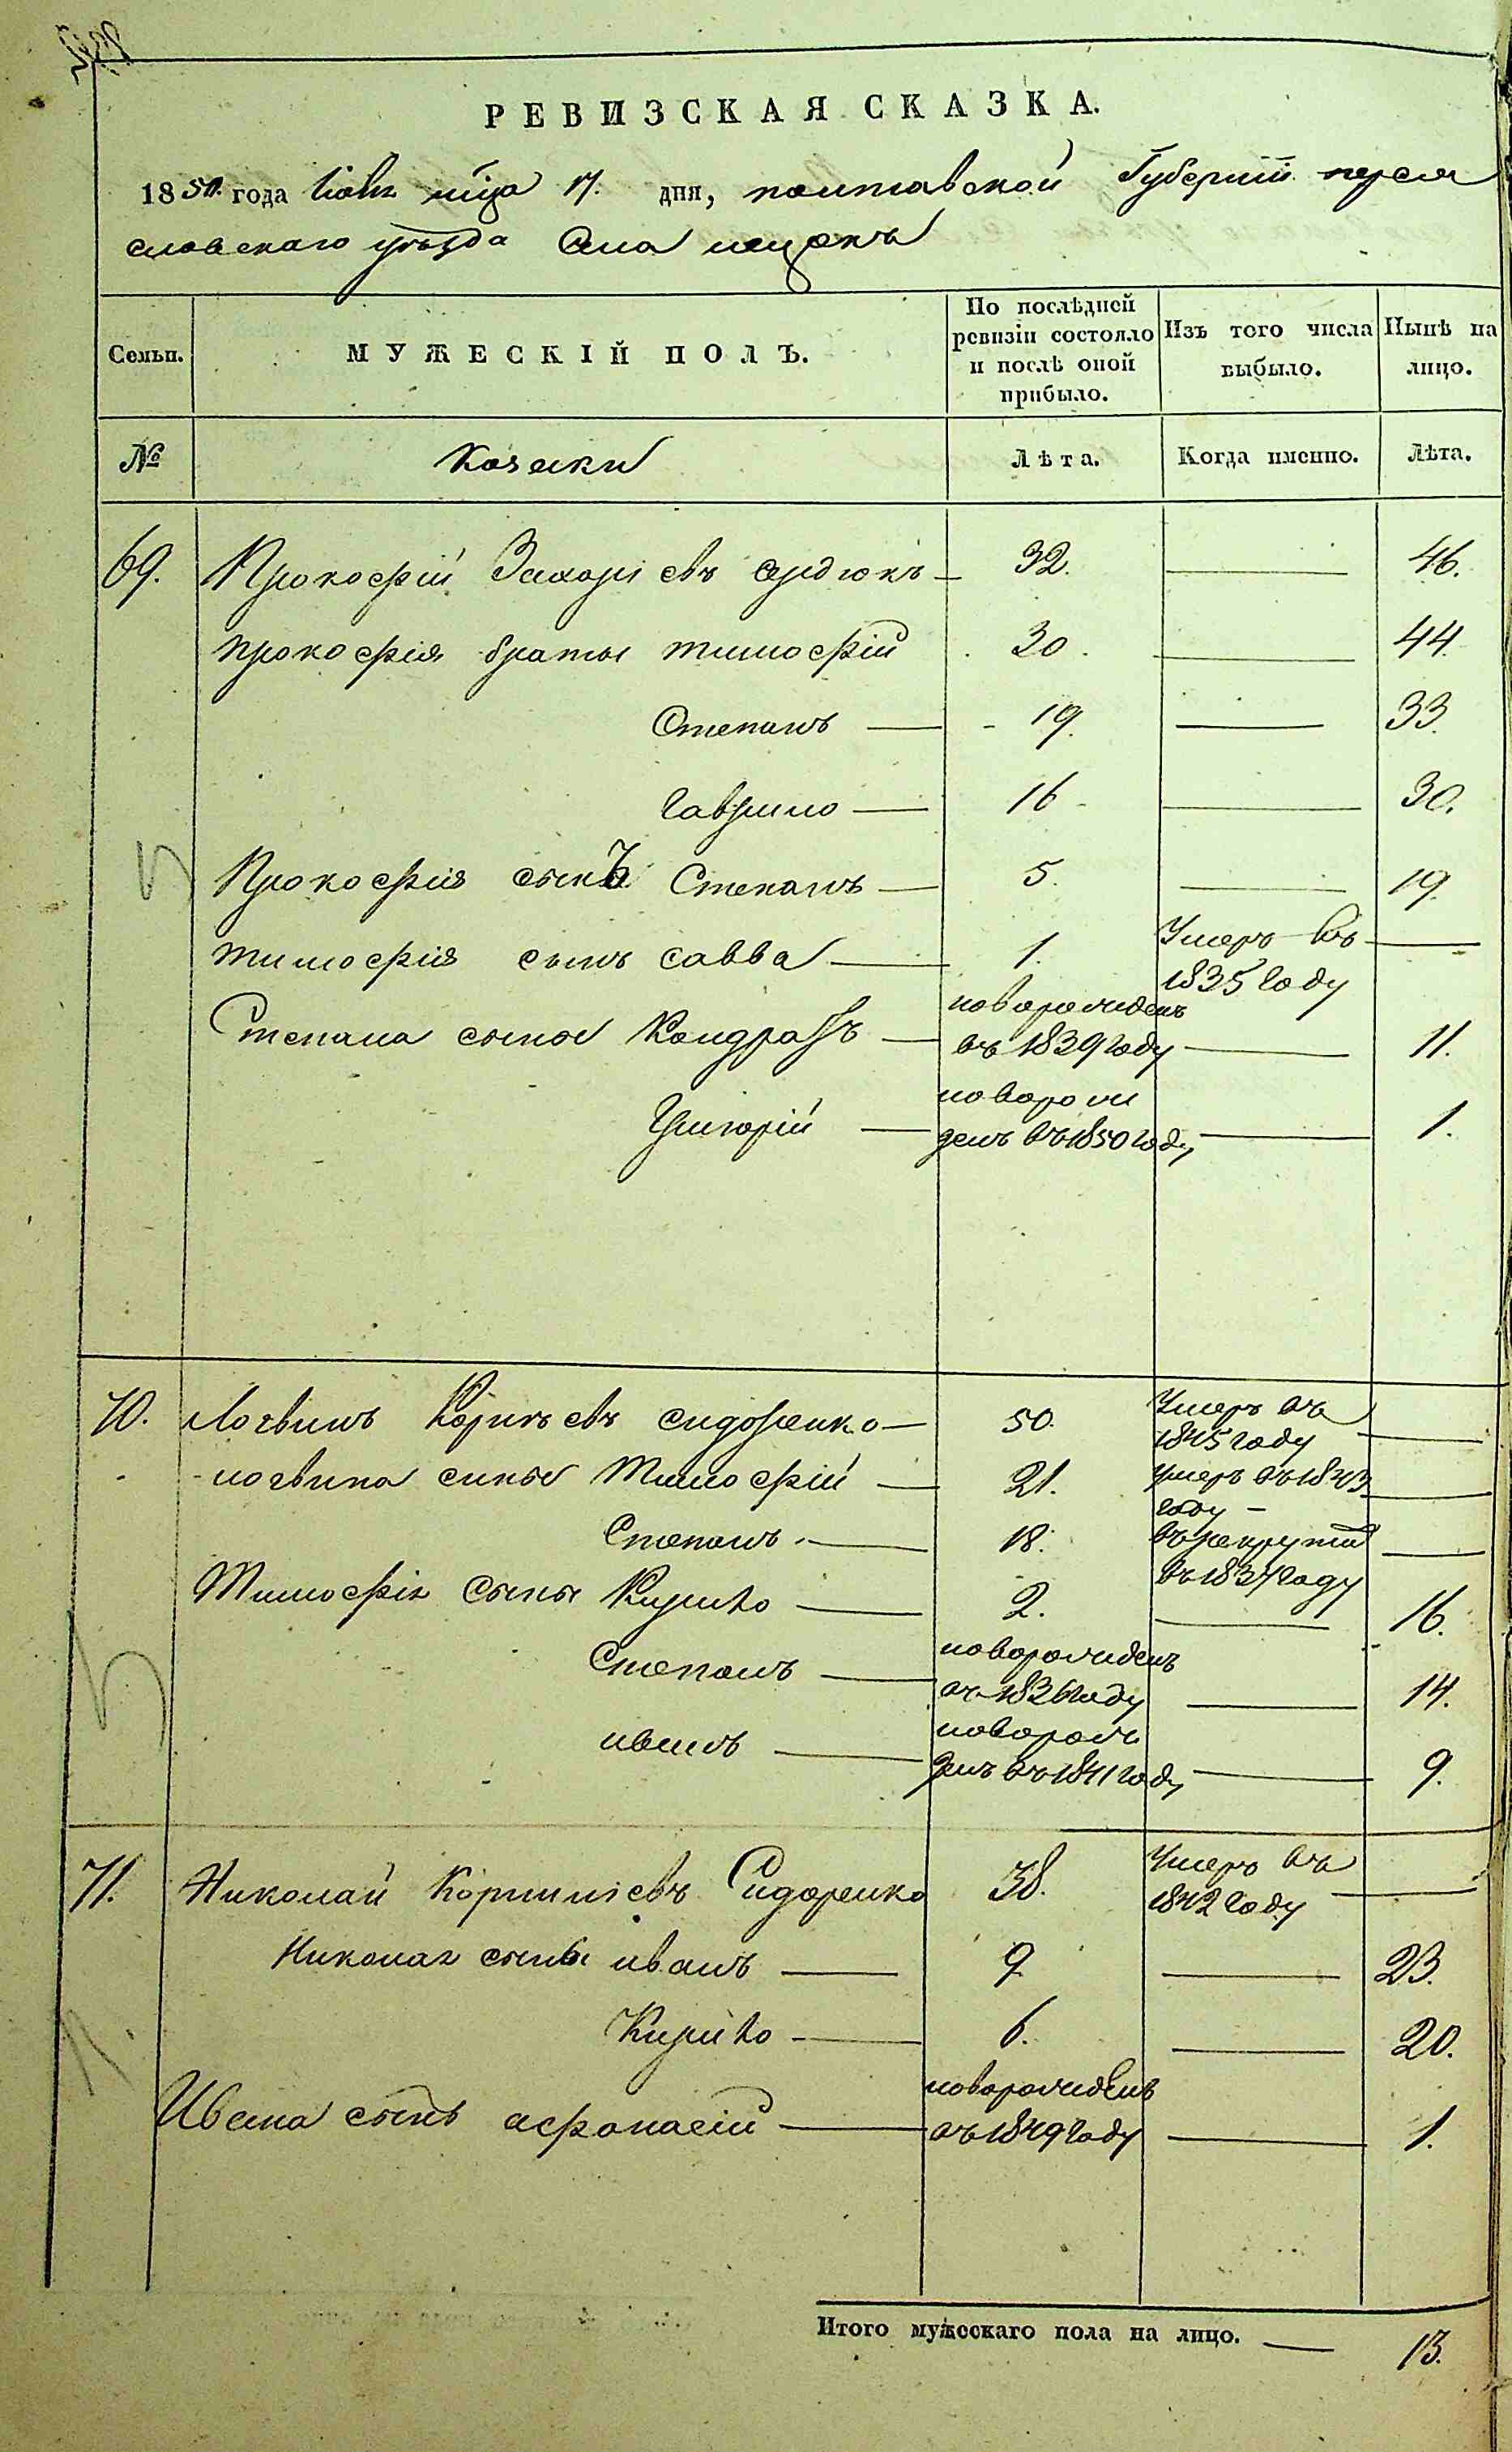 РЕВИЗСКАЯ СКАЗКА.
1850 года Іюня мца 17. дня, полтавской Губерніи перея
славскаго уѣзда Села
Семьи.
МУЖЕСКІЙ ПОЛЪ.
По послѣдней ревизіи состояло и послѣ оной прибыло.
Изъ того числа выбыло.
Нынѣ на лицо.
№
Козаки
Лѣта.
Когда именно.
Лѣта.
69. Прокофій Захаріевъ Сердюкъ — 32. — 46.
Прокофія братья тимофій 30. — 44.
Степанъ — 19. — 33.
Гаврило — 16 — 30.
Прокофія сынъ Степанъ — 5. — 19.
тимофія сынъ савва — 1. Умеръ въ 1835 году —
Степана сыны Кондратъ — новорожденъ въ 1839 году — 11.
Григорій — новорожденъ въ 1850 году — 1.
70. Логвинъ Корнѣевъ сидоренко — 50. Умеръ въ 1845 году —
логвина сины Тимофій — 21. умеръ въ 1843 году —
Степанъ — 18. въ рекруты въ 1837 году —
Тимофія Сыны Кирило — 2. — 16.
Степанъ — новорожденъ въ 1836 году — 14.
иванъ — новорожденъ въ 1841 году — 9.
71. Николай Корниліевъ Сидоренко 38. Умеръ въ 1842 году —
Николая сыны иванъ — 9 — 23.
Кирило — 6. — 20.
Ивана сынъ афонасій — новорожденъ въ 1849 году — 1.
Итого мужескаго пола на лицо. — 13.